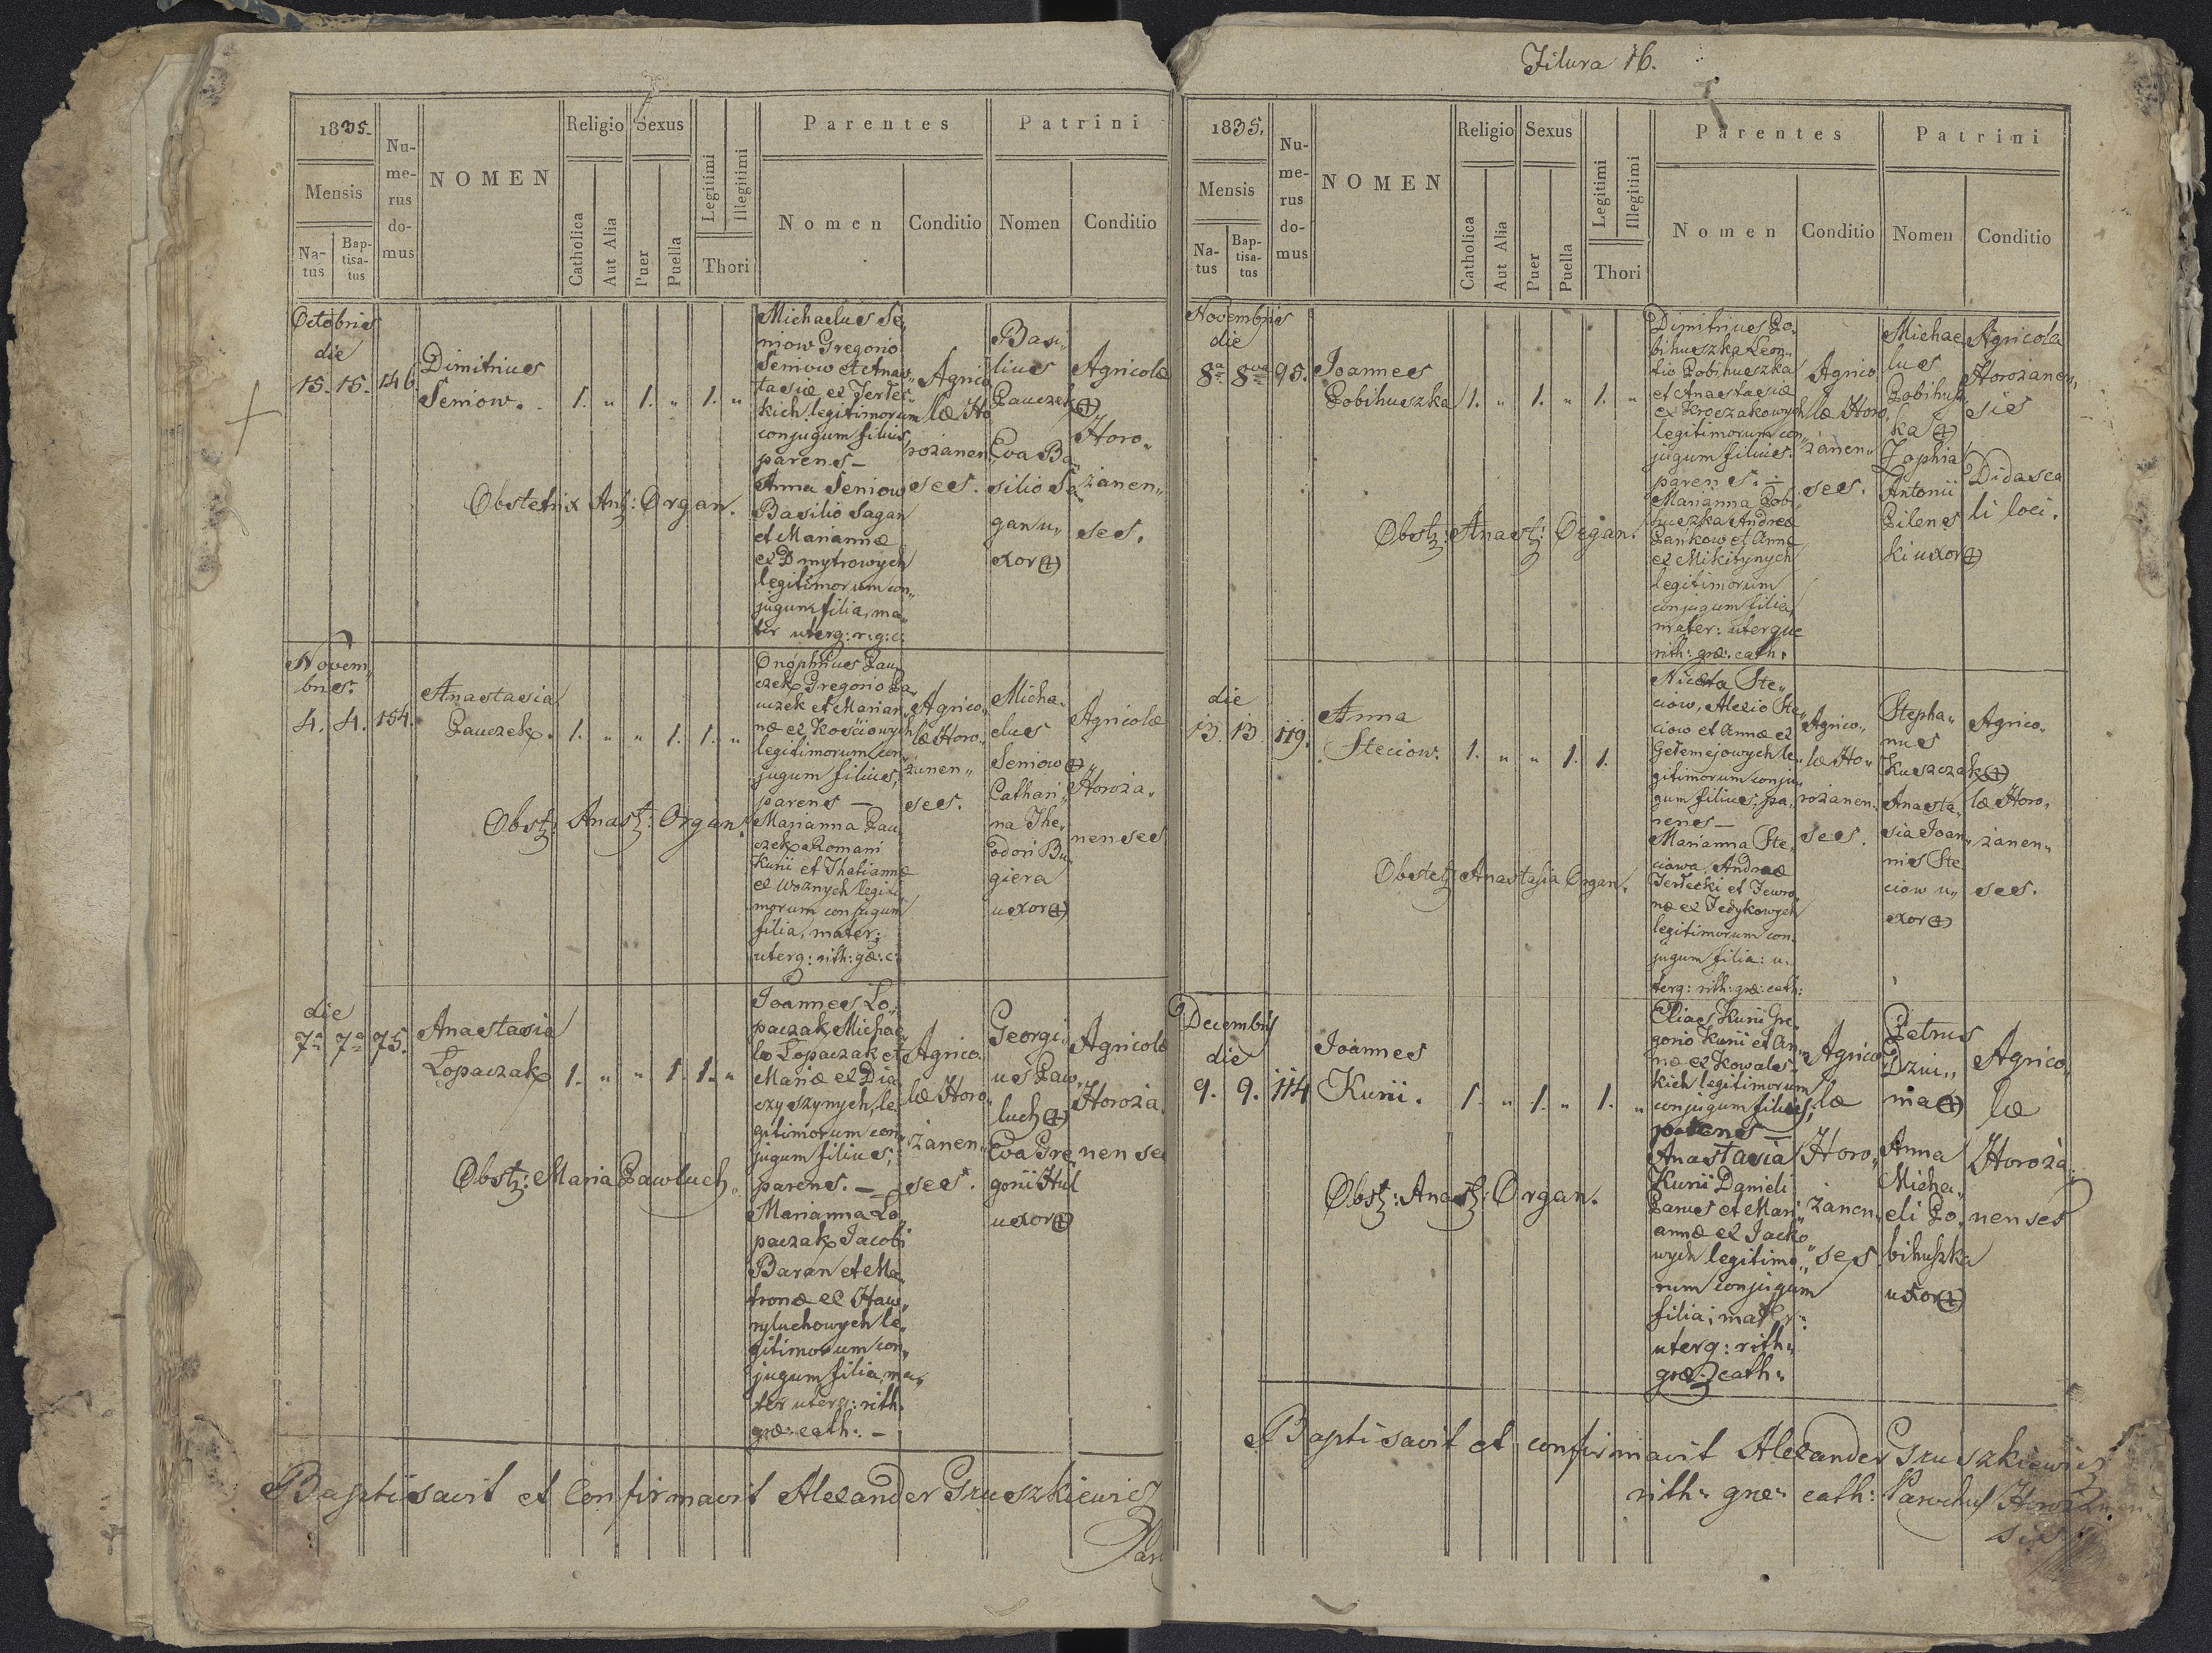 1835.
Mensis
Na-
tus
Bap-
tisa-
tus
Nu-
me-
rus
do-
mus
NOMEN
Religio
Catholica
Aut Alia
Sexus
Puer
Puella
Legitimi
Illegitimi
Thori
Parentes
Nomen
Conditio
Patrini
Nomen
Conditio
Octobris
die
15. 15. 146
Dimitrius
Seniow.
1. „ 1. „ 1. „
Michaelus Se„
niow Gregorio
Seniow et Anas„
tasiæ ex
kich legitimorum
conjugum filius,
parens –
Anna Seniow
Basilio Sagan
et Mariannæ
ex Dmytrowych
legitimorum con„
jugum filia, ma„
ter uterq: r: g: c:
Agrico„
læ Ho„
rożanen„
ses.
Basi„
lius
Pauczek (+)
Eva Ba„
silio Sa„
gan u„
xor (+)
Agricolæ
Horo„
żanen„
ses.
Obstetrix Anʒ: Organ.
Novem„
bris.
4. 4. 154.
Anastasia
Pauczek.
1. „ „ 1. 1. „
Onophrius Pau„
czek Gregorio Pa„
uczek et Marian„
næ ex Kościowych
legitimorum con„
jugum filius,
parens –
Marianna Pau„
czek Romani
Kurii et Thatiannæ
ex Woznych legiti„
morum conjugum
filia, mater:
uterq: rith: gæ: c:
Agrico„
læ Horo„
żanen„
ses.
Micha„
elus
Seniow (+)
Cathari„
na The„
odori Bu„
giera
uxor (+)
Agricolæ
Horoża„
nenses
Obstʒ: Anastʒ: Organ.
die
7ª 7ª 75.
Anastasia
Łopaczak
1. „ „ 1. 1. „
Joannes Ło„
paczak Michae„
lo Łopaczak et
Mariæ ex Dia„
czyszynych, le„
gitimorum con„
jugum filius,
parens. –
Marianna Ło„
paczak Jacobi
Baran et Ma„
tronæ ex Haw„
ryluchowych le„
gitimorum con„
jugum filia, ma„
ter uterq: rith:
græ: cath: –
Agrico„
læ Horo„
żanen„
ses.
Georgi„
us Paw„
luch (+)
Eva Gre„
gorii Hul
uxor (+)
Agricolæ
Horoża„
nenses
Obstʒ: Maria Pawluch.
Baptisavit et Confirmavit Alexander Gruszkiewicz
Par
Filura 16.
1835.
Mensis
Na-
tus
Bap-
tisa-
tus
Nu-
me-
rus
do-
mus
NOMEN
Religio
Catholica
Aut Alia
Sexus
Puer
Puella
Legitimi
Illegitimi
Thori
Parentes
Nomen
Conditio
Patrini
Nomen
Conditio
Novembris
die
8ª 8va 95.
Joannes
Pobihuszka
1. „ 1. „ 1. „
Dimitrius Po„
bihuszka Leon„
tio Pobihuszka
et Anastasiæ
ex Kroczakowych
legitimorum con„
jugum filius.
parens: –
Marianna Pobi„
huszka Andreæ
Pankow et Annæ
ex Mikitynych
legitimorum
conjugum filia,
mater: uterque
rith: græ: cath:
Agrico„
læ Horo„
żanen„
ses.
Michae„
lus
Pobihusz„
ka (+)
Zophia
Antonii
Pilens„
ki uxor (+)
Agricola
Horożanen„
sis
Didasca
li loci.
Obstʒ: Anastʒ: Organ.
die
13. 13. 119.
Anna
Steciow.
1. „ „ 1. 1.
Niceta Ste„
ciow, Alexio Ste„
ciow et Annæ ex
Geremejowych le„
gitimorum conju„
gum filius, pa„
rens –
Marianna Ste„
ciowa, Andreæ
et Jewro„
næ ex Fedykowych
legitimorum con„
jugum filia: u„
terq: rith: græ: cath:
Agrico„
læ Ho„
rożanen„
ses.
Stepha„
nus
Kuszczak (+)
Anasta„
sia Joan„
nis Ste„
ciow u„
xor (+)
Agrico„
læ Horo„
żanen„
ses.
Obstetʒ: Anastasia Organ.
Decembris
die
9. 9. 114
Joannes
Kurii.
1. „ 1. „ 1. „
Elias Kurii Gre„
gorio Kurii et An„
næ ex Kowals„
kich legitimorum
conjugum filius,
parens –
Anastasia
Kurii Danieli
Panus et Mari„
annæ ex Jacko„
wych legitimo„
rum conjugum
filia; mater:
uterq: rith:
græ: cath:
Agrico„
læ
Horo„
żanen„
ses
Petrus
Dzui„
ma (+)
Anna
Micha„
eli Po„
bihuszki
uxor (+)
Agrico„
læ
Horoża„
nenses
Obstʒ: Anastʒ: Organ.
Baptisavit et confirmavit Alexander Gruszkiewicz
rith: græ: cath: Parochus Horożanen„
sis